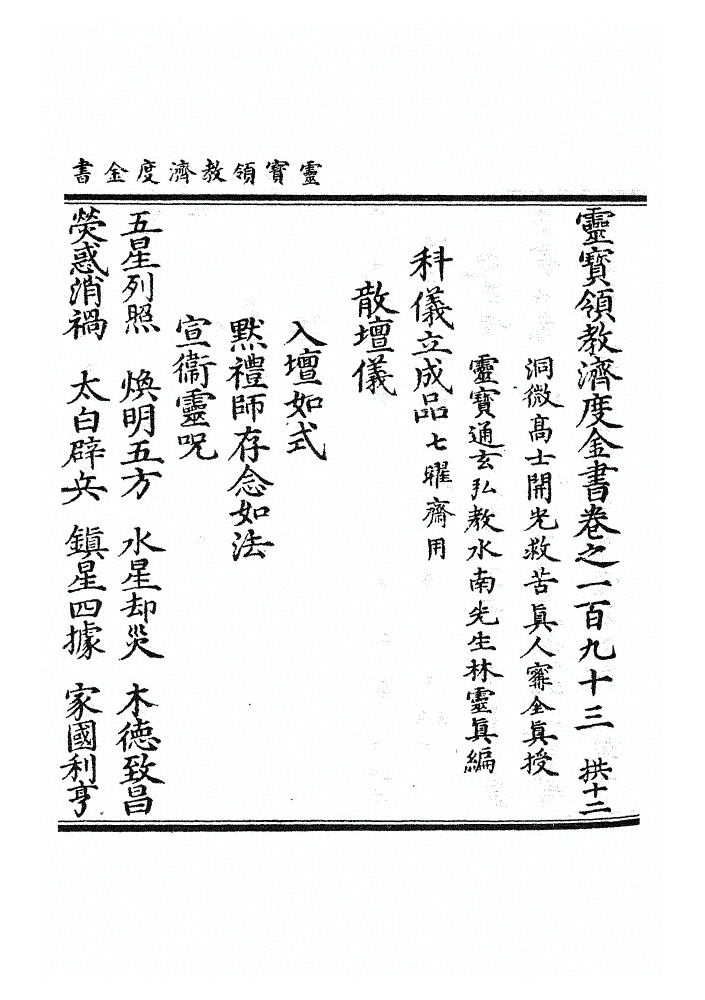 靈寳領教濟度金書
靈寳領教濟度金書卷之一百九十三 拱十二
洞微高士開光救苦眞人寗全眞授
靈寳通玄弘教水南先生林靈眞編
科儀立成品七曜齋用
散壇儀
入壇如式
默禮師存念如法
宣衞靈呪
五星列照 煥明五方 水星却災 木德致昌
熒惑消禍 太白辟兵 鎮星四據 家國利亨